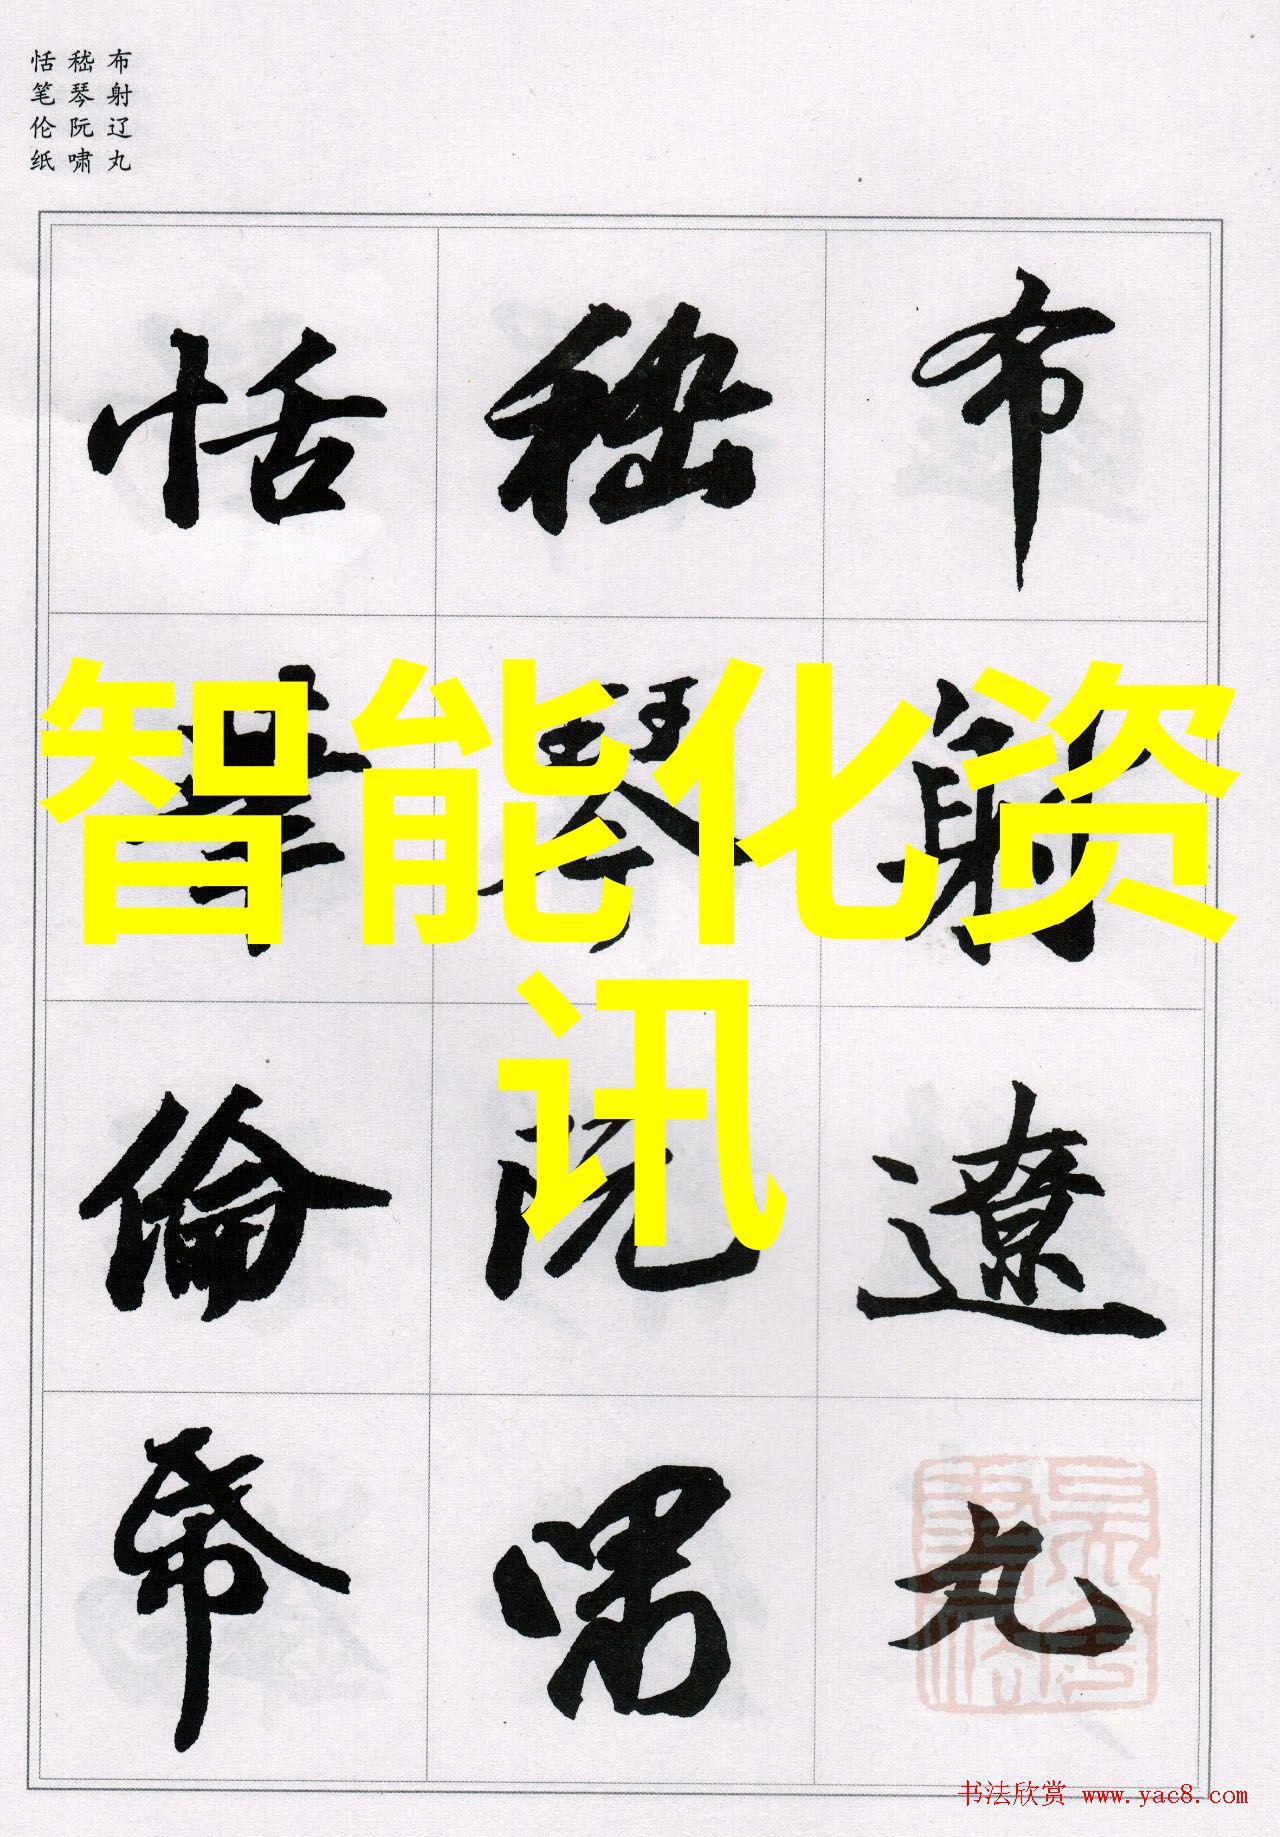 布射辽丸
嵇琴阮啸
恬笔伦纸
布射遼丸
嵇琴阮嘯
恬筆倫帋
智能化资
讯
书法欣赏 www.yac8.com